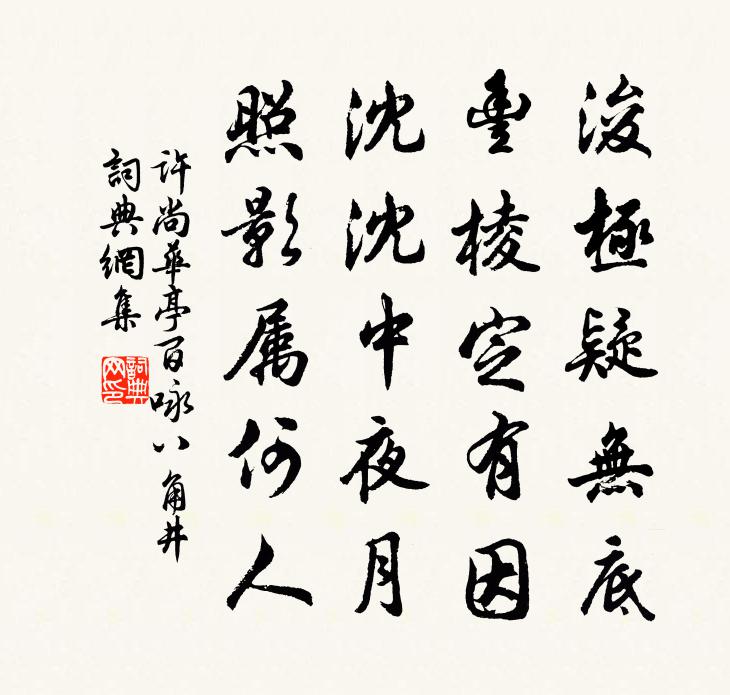 浚極疑無底
壘棱定有因
沈沈中夜月
照影属何人
許尚華亭百咏八角井
詞典網集
詞典網印